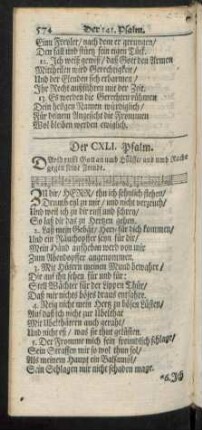 574 Der 141. Psalm.
Einn Frevler/ nach dem er gerungen/
Der fall und stürtz sein eigen Tück.
12. Ich weiß gewiß/ daß Gott den Armen
Mittheilen wird Gerechtigkeit/
Und der Elenden sich erbarmen/
Ihr Recht ausführen mit der Zeit.
13. Es werden die Gerechten rühmen
Dein heilgen Namen würdiglich/
Für deinem Angesicht die Frommen
Wol bleiben werden ewiglich.
Der CXLI. Psalm.
David rufft Gott an umb Hülffe/ und umb Rache
gegen seine Feinde.
Zu dir/ HERR/ thu ich sehnlich flehen/
Drumb eyl zu mir/ und nicht verzeuch/
Und weil ich zu dir ruff und schrey/
So laß dir das zu Hertzen gehen.
2. Laß mein Gebät/ Herr/ für dich kommen/
Und ein Räuchopffer seyn für dir/
Mein Händ auffheben werd von mir
Zum Abendopffer angenommen.
3. Mit Hütern meinen Mund bewahre/
Die auf ihn sehen für und für:
Stell Wächter für der Lippen Thür/
Daß mir nichts böses draus entfahre.
4. Neig nicht mein Hertz zu bösen Lüsten/
Auf daß ich nicht zur Ubelthat
Mit Ubelthätern auch geraht/
Und nicht eß/ was sie thut gelüsten.
5. Der Fromme mich sein freundlich schlage/
Sein Straffen mir so wol thun sol/
Als meinem Haupt ein Balsamöl/
Sein Schlagen mir nicht schaden mage.
*6. Ich